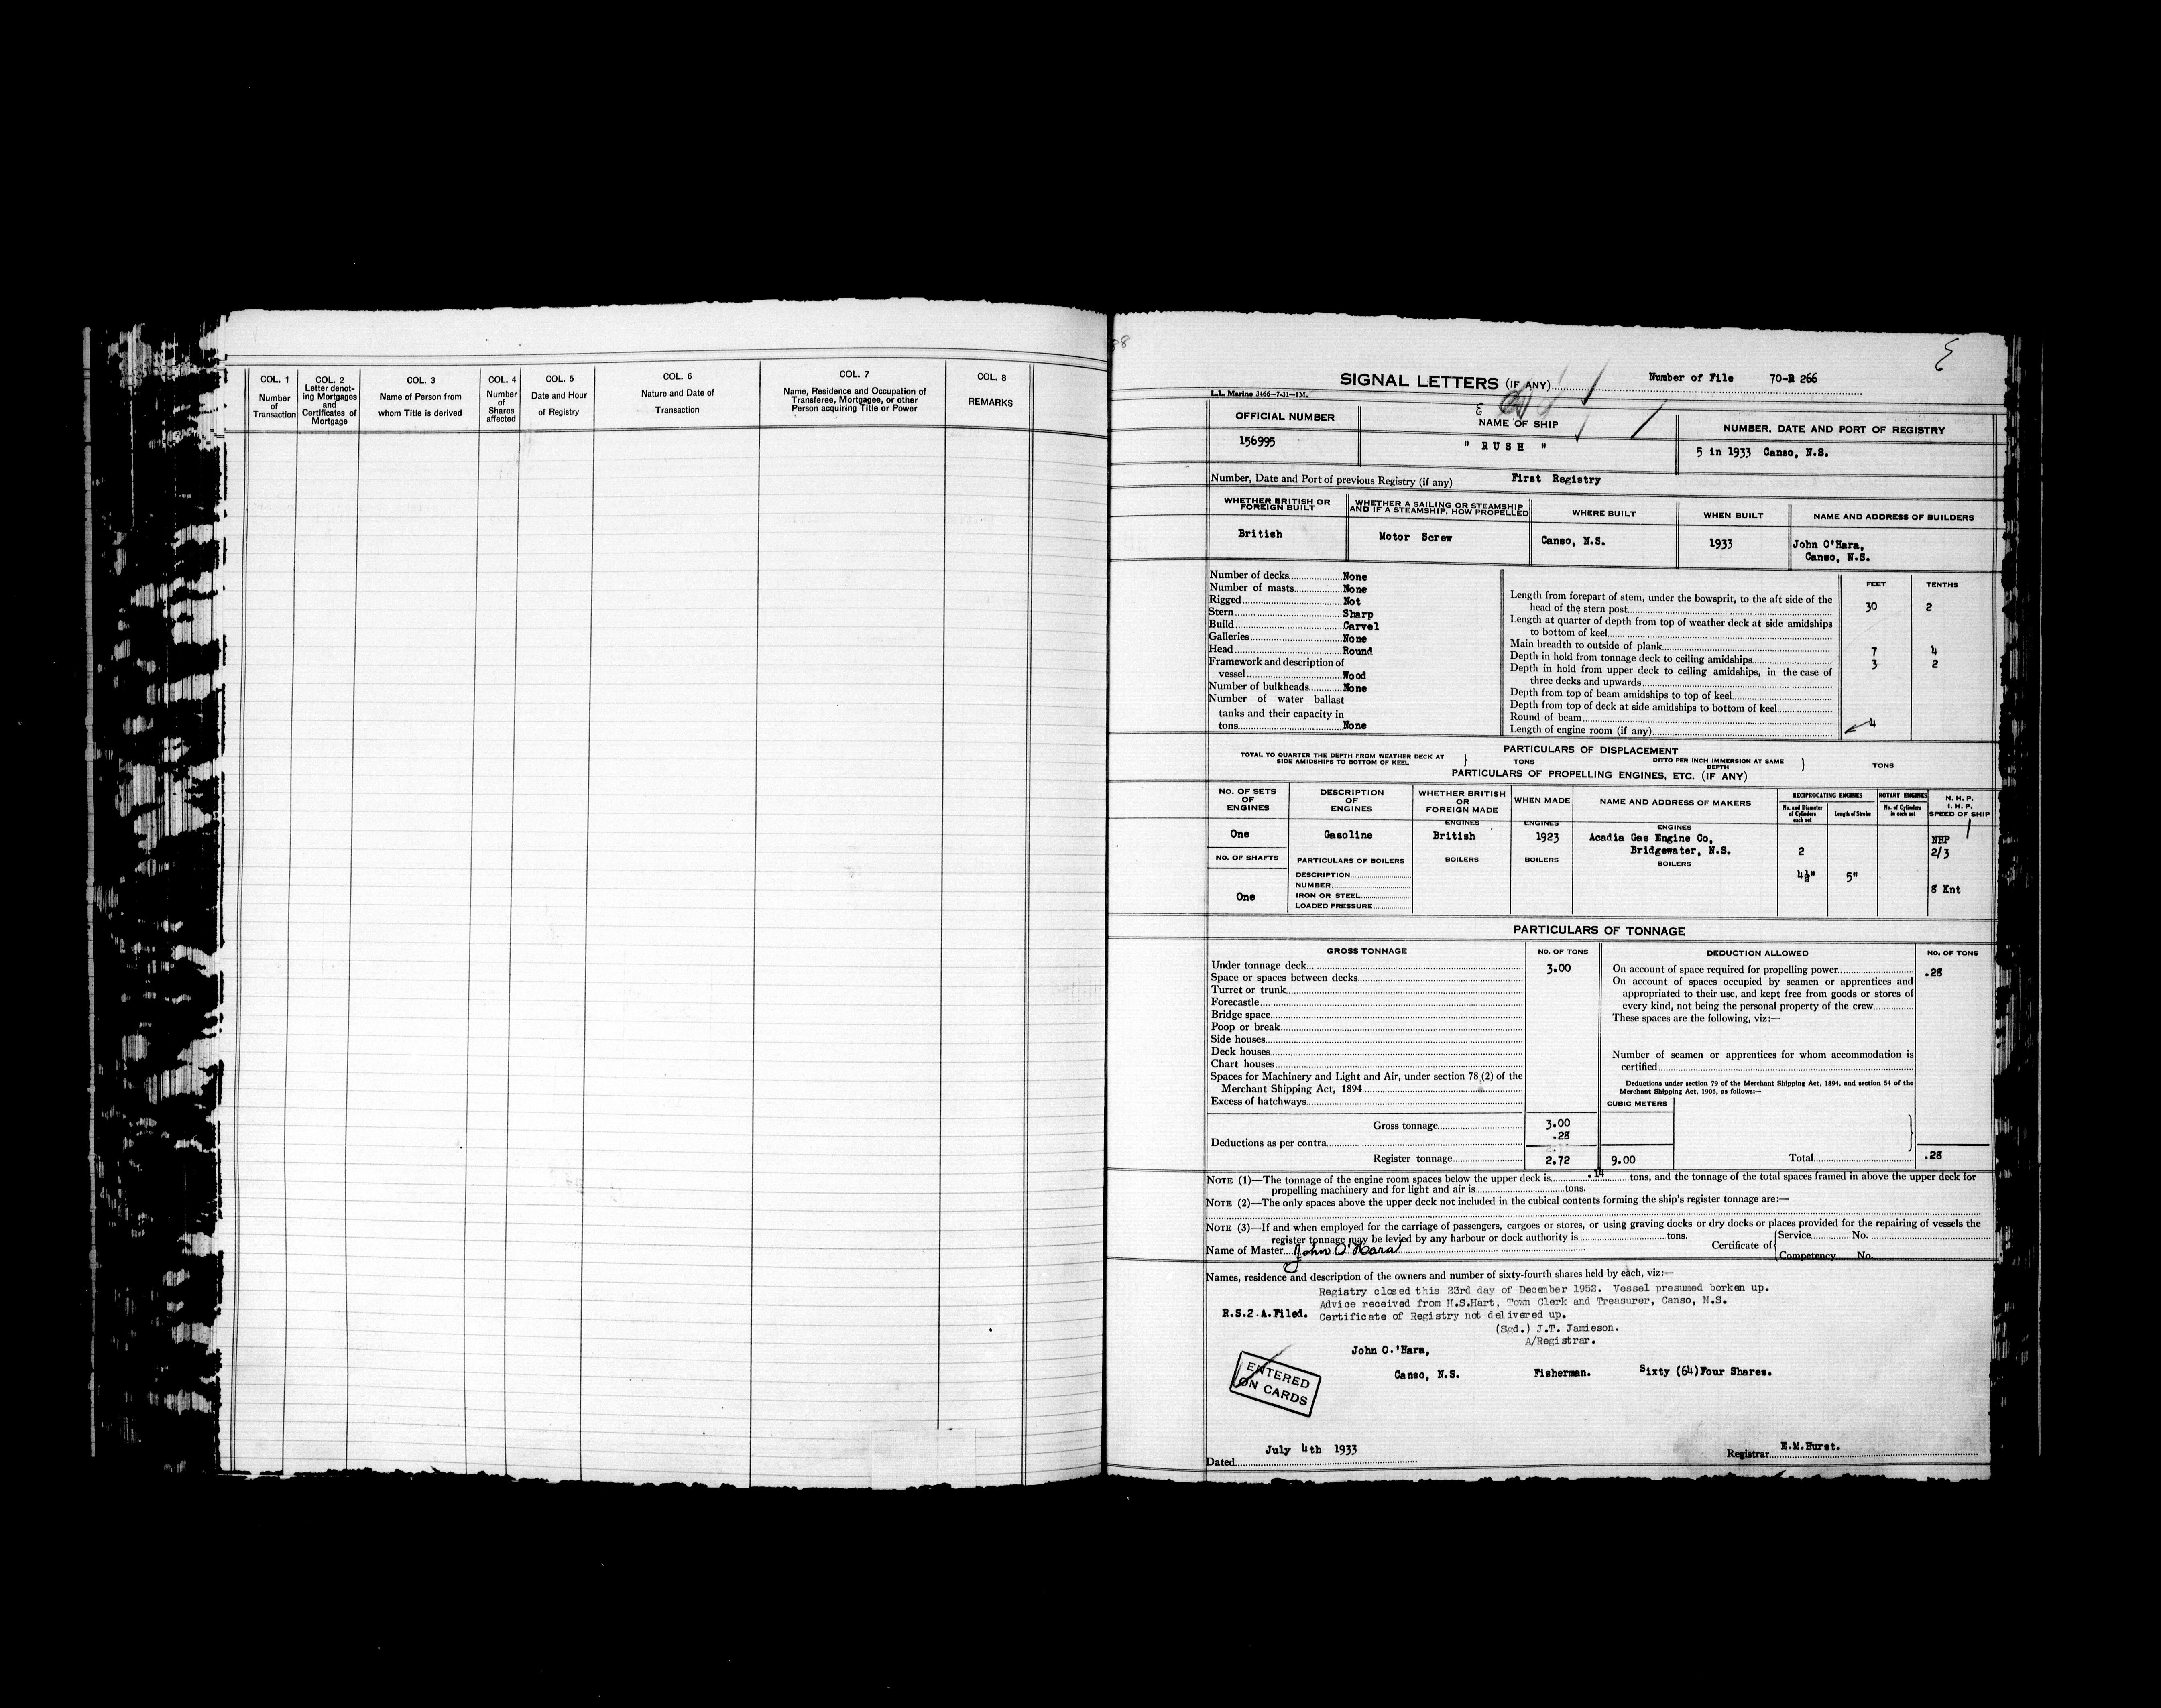 COL. 1
Number
of
Transaction
COL. 2
Letter denot-
ing Mortgages
and
Certificates of
Mortgage
COL. 3
Name of Person from
whom Title is derived
COL. 4
Number
of
Shares
affected
COL. 5
Date and Hour
of Registry
COL. 6
Nature and Date of
Transaction
COL. 7
Name, Residence and Occupation of
Transferee, Mortgagee, or other
Person acquiring Title or Power
COL. 8
REMARKS
SIGNAL LETTERS (IF ANY) Number of File 70-R 266
L.L. Marine 3466—7-31—1M.
OFFICIAL NUMBER
156995
NAME OF SHIP
" R U S H "
NUMBER, DATE AND PORT OF REGISTRY
5 in 1933 Canso, N.S.
Number, Date and Port of previous Registry (if any) First Registry
WHETHER BRITISH OR
FOREIGN BUILT
British
WHETHER A SAILING OR STEAMSHIP
AND IF A STEAMSHIP, HOW PROPELLED
Motor Screw
WHERE BUILT
Canso, N.S.
WHEN BUILT
1933
NAME AND ADDRESS OF BUILDERS
John O'Hara,
Canso, N.S.
Number of decks None
Number of masts None
Rigged Not
Stern Sharp
Build Carvel
Galleries None
Head Round
Framework and description of
vessel Wood
Number of bulkheads None
Number of water ballast
tanks and their capacity in
tons None
FEET TENTHS
Length from forepart of stem, under the bowsprit, to the aft side of the
head of the stern post 30 2
Length at quarter of depth from top of weather deck at side amidships
to bottom of keel
Main breadth to outside of plank 7 4
Depth in hold from tonnage deck to ceiling amidships 3 2
Depth in hold from upper deck to ceiling amidships, in the case of
three decks and upwards
Depth from top of beam amidships to top of keel
Depth from top of deck at side amidships to bottom of keel
Round of beam
Length of engine room (if any) 4
PARTICULARS OF DISPLACEMENT
TOTAL TO QUARTER THE DEPTH FROM WEATHER DECK AT
SIDE AMIDSHIPS TO BOTTOM OF KEEL } TONS
DITTO PER INCH IMMERSION AT SAME
DEPTH } TONS
PARTICULARS OF PROPELLING ENGINES, ETC. (IF ANY)
NO. OF SETS
OF
ENGINES
One
NO. OF SHAFTS
One
DESCRIPTION
OF
ENGINES
Gasoline
PARTICULARS OF BOILERS
DESCRIPTION
NUMBER
IRON OR STEEL
LOADED PRESSURE
WHETHER BRITISH
OR
FOREIGN MADE
ENGINES
British
BOILERS
WHEN MADE
ENGINES
1923
BOILERS
NAME AND ADDRESS OF MAKERS
ENGINES
Acadia Gas Engine Co,
Bridgewater, N.S.
BOILERS
RECIPROCATING ENGINES
No. and Diameter
of Cylinders
each set
2
4½"
Length of Stroke
5"
ROTARY ENGINES
No. of Cylinders
in each set
N. H. P.
I. H. P.
SPEED OF SHIP
NHP
2/3
8 Knt
PARTICULARS OF TONNAGE
GROSS TONNAGE NO. OF TONS
Under tonnage deck 3.00
Space or spaces between decks
Turret or trunk
Forecastle
Bridge space
Poop or break
Side houses
Deck houses
Chart houses
Spaces for Machinery and Light and Air, under section 78 (2) of the
Merchant Shipping Act, 1894
Excess of hatchways
Gross tonnage 3.00
Deductions as per contra .28
Register tonnage 2.72
DEDUCTION ALLOWED NO. OF TONS
On account of space required for propelling power .28
On account of spaces occupied by seamen or apprentices and
appropriated to their use, and kept free from goods or stores of
every kind, not being the personal property of the crew
These spaces are the following, viz:—
Number of seamen or apprentices for whom accommodation is
certified
Deductions under section 79 of the Merchant Shipping Act, 1894, and section 54 of the
Merchant Shipping Act, 1906, as follows:—
CUBIC METERS
9.00 Total .28
NOTE (1)—The tonnage of the engine room spaces below the upper deck is .14 tons, and the tonnage of the total spaces framed in above the upper deck for
propelling machinery and for light and air is tons.
NOTE (2)—The only spaces above the upper deck not included in the cubical contents forming the ship's register tonnage are:—
NOTE (3)—If and when employed for the carriage of passengers, cargoes or stores, or using graving docks or dry docks or places provided for the repairing of vessels the
register tonnage may be levied by any harbour or dock authority is tons.
Name of Master John O'Hara Certificate of { Service No.
Competency No.
Names, residence and description of the owners and number of sixty-fourth shares held by each, viz:—
Registry closed this 23rd day of December 1952. Vessel presumed borken up.
Advice received from H.S.Hart, Town Clerk and Treasurer, Canso, N.S.
R.S.2.A.Filed. Certificate of Registry not delivered up.
(Sgd.) J.T. Jamieson.
A/Registrar.
John O.'Hara,
Canso, N.S. Fisherman. Sixty (64)Four Shares.
ENTERED
ON CARDS
Dated July 4th 1933
Registrar E.M.Hurst.